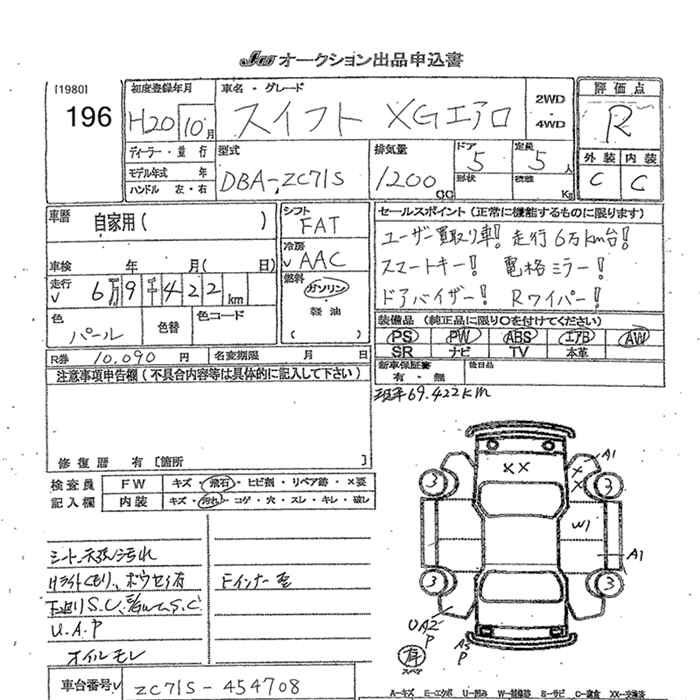 JU オークション出品申込書
[1980]
196
初度登録年月
H20 10月
車名・グレード
スイフト XGエアロ
2WD
・
4WD
評価点
R
外装 内装
C C
ディーラー・並行
モデル年式 年
ハンドル 左・右
型式
DBA-ZC71S
排気量
1200 CC
ドア 5
形状
定員 5 人
積載 Kg
車歴 自家用( )
車検 年 月( 日)
走行 6万9千422km
色 パール
色替
色コード
シフト FAT
冷房 AAC
燃料 ガソリン
・
軽油
( )
セールスポイント(正常に機能するものに限ります)
ユーザー買取り車! 走行6万km台!
スマートキー! 電格ミラー!
ドアバイザー! Rワイパー!
装備品 (純正品に限り○を付けてください)
PS PW ABS エアB AW
SR ナビ TV 本革
新車保証書
有・無
後日品
R券 10,090 円
名変期限 月 日
69.422km
注意事項申告欄(不具合内容等は具体的に記入して下さい)
修復歴 有[箇所 ]
検査員 FW キズ・飛石・ヒビ割・リペア跡・×要
記入欄 内装 キズ・汚れ・コゲ・穴・スレ・キレ・破レ
汚れ
有
Fインナー
下廻りS.C.
S.C.
U.A.P
オイルモレ
車台番号 ZC71S-454708
XX
A1
XX
3
3
W1
A1
3
3
UA2
P
P
有
スペア
A-キズ E-エクボ U-凹み